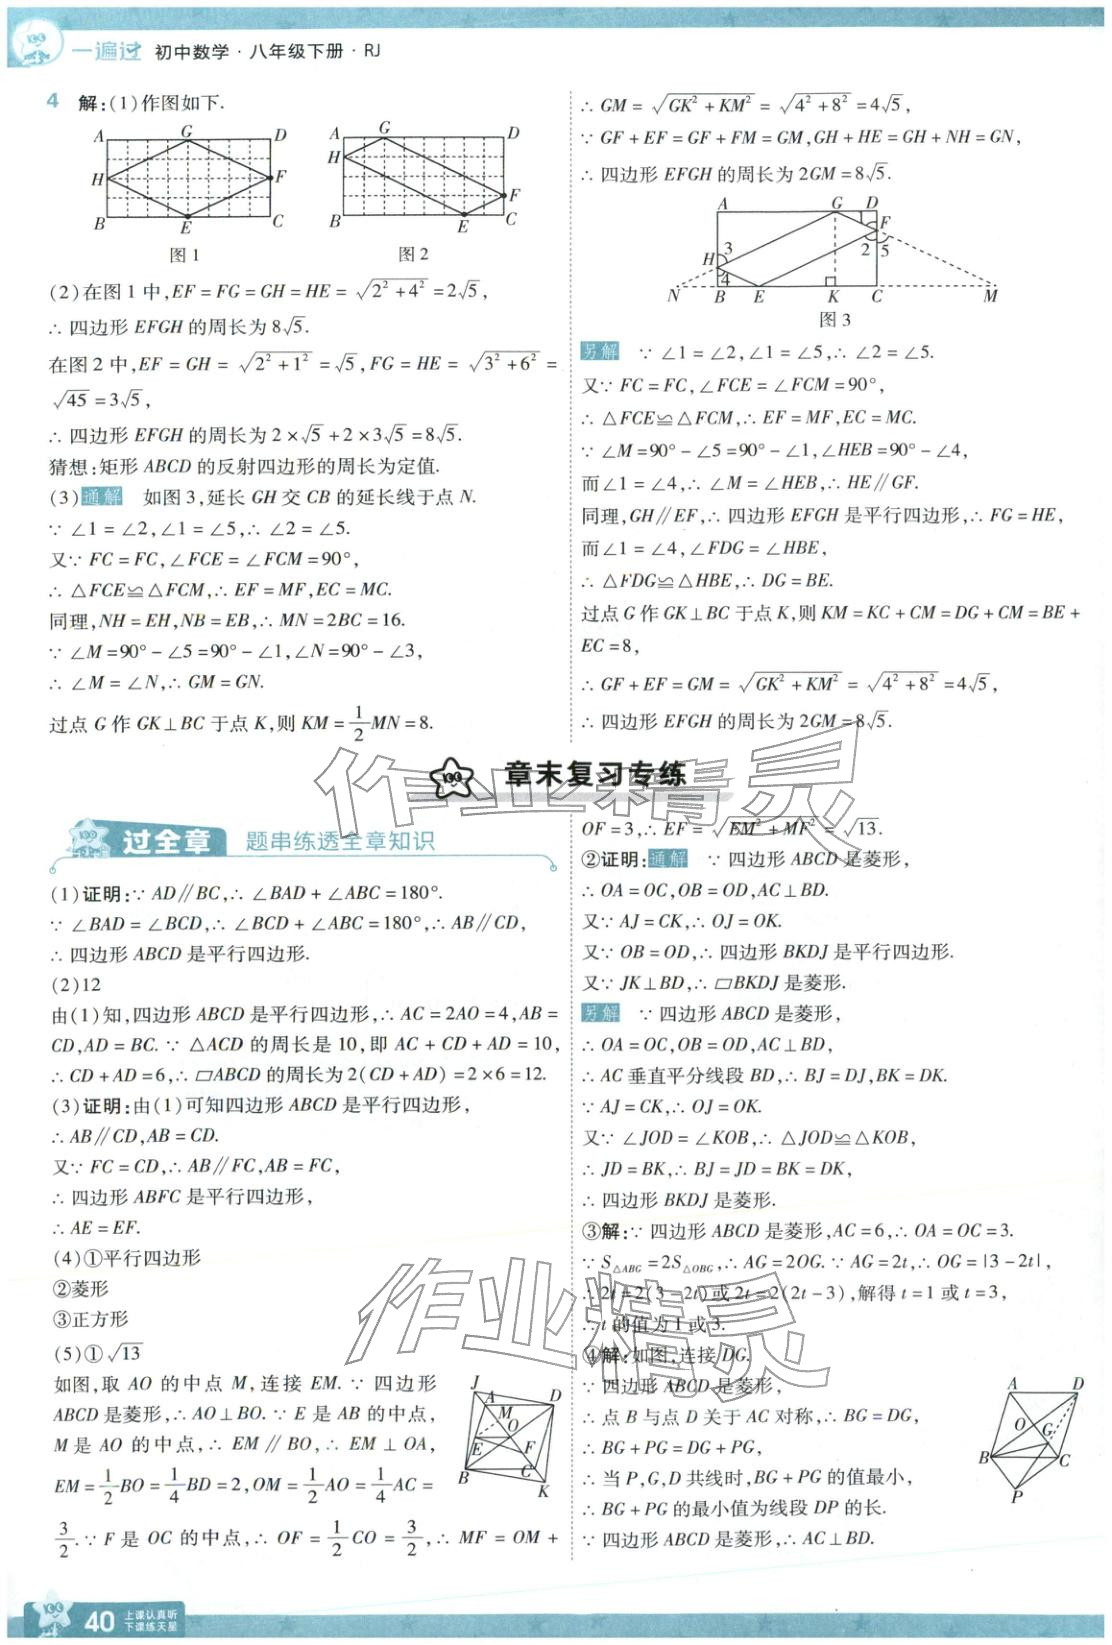 一遍过 初中数学·八年级下册·RJ
4 解:(1)作图如下.
A G D H F B E C
图1
A G D H F B E C
图2
(2)在图1中,EF=FG=GH=HE=√(2²+4²)=2√5,
∴四边形EFGH的周长为8√5.
在图2中,EF=GH=√(2²+1²)=√5,FG=HE=√(3²+6²)=
√45=3√5,
∴四边形EFGH的周长为2×√5+2×3√5=8√5.
猜想:矩形ABCD的反射四边形的周长为定值.
(3)通解 如图3,延长GH交CB的延长线于点N.
∵∠1=∠2,∠1=∠5,∴∠2=∠5.
又∵FC=FC,∠FCE=∠FCM=90°,
∴△FCE≌△FCM,∴EF=MF,EC=MC.
同理,NH=EH,NB=EB,∴MN=2BC=16.
∵∠M=90°-∠5=90°-∠1,∠N=90°-∠3,
∴∠M=∠N,∴GM=GN.
过点G作GK⊥BC于点K,则KM=1/2MN=8.
∴GM=√(GK²+KM²)=√(4²+8²)=4√5,
∵GF+EF=GF+FM=GM,GH+HE=GH+NH=GN,
∴四边形EFGH的周长为2GM=8√5.
A G D 1 F H 3 2 5 4 N B E K C M
图3
另解 ∵∠1=∠2,∠1=∠5,∴∠2=∠5.
又∵FC=FC,∠FCE=∠FCM=90°,
∴△FCE≌△FCM,∴EF=MF,EC=MC.
∵∠M=90°-∠5=90°-∠1,∠HEB=90°-∠4,
而∠1=∠4,∴∠M=∠HEB,∴HE∥GF.
同理,GH∥EF,∴四边形EFGH是平行四边形,∴FG=HE,
而∠1=∠4,∠FDG=∠HBE,
∴△FDG≌△HBE,∴DG=BE.
过点G作GK⊥BC于点K,则KM=KC+CM=DG+CM=BE+
EC=8,
∴GF+EF=GM=√(GK²+KM²)=√(4²+8²)=4√5,
∴四边形EFGH的周长为2GM=8√5.
章末复习专练
过全章 题串练透全章知识
(1)证明:∵AD∥BC,∴∠BAD+∠ABC=180°.
∵∠BAD=∠BCD,∴∠BCD+∠ABC=180°,∴AB∥CD,
∴四边形ABCD是平行四边形.
(2)12
由(1)知,四边形ABCD是平行四边形,∴AC=2AO=4,AB=
CD,AD=BC.∵△ACD的周长是10,即AC+CD+AD=10,
∴CD+AD=6,∴▱ABCD的周长为2(CD+AD)=2×6=12.
(3)证明:由(1)可知四边形ABCD是平行四边形,
∴AB∥CD,AB=CD.
又∵FC=CD,∴AB∥FC,AB=FC,
∴四边形ABFC是平行四边形,
∴AE=EF.
(4)①平行四边形
②菱形
③正方形
(5)①√13
如图,取AO的中点M,连接EM.∵四边形
ABCD是菱形,∴AO⊥BO.∵E是AB的中点,
M是AO的中点,∴EM∥BO,∴EM⊥OA,
EM=1/2BO=1/4BD=2,OM=1/2AO=1/4AC=
3/2.∵F是OC的中点,∴OF=1/2CO=3/2,∴MF=OM+
J A D M O E F B C K
OF=3,∴EF=√(EM²+MF²)=√13.
②证明:通解 ∵四边形ABCD是菱形,
∴OA=OC,OB=OD,AC⊥BD.
又∵AJ=CK,∴OJ=OK.
又∵OB=OD,∴四边形BKDJ是平行四边形.
又∵JK⊥BD,∴▱BKDJ是菱形.
另解 ∵四边形ABCD是菱形,
∴OA=OC,OB=OD,AC⊥BD,
∴AC垂直平分线段BD,∴BJ=DJ,BK=DK.
∵AJ=CK,∴OJ=OK.
又∵∠JOD=∠KOB,∴△JOD≌△KOB,
∴JD=BK,∴BJ=JD=BK=DK,
∴四边形BKDJ是菱形.
③解:∵四边形ABCD是菱形,AC=6,∴OA=OC=3.
∵S△ABG=2S△OBG,∴AG=2OG.∵AG=2t,∴OG=|3-2t|,
∴2t=2(3-2t)或2t=2(2t-3),解得t=1或t=3,
∴t的值为1或3.
④解:如图,连接DG.
∵四边形ABCD是菱形,
∴点B与点D关于AC对称,∴BG=DG,
∴BG+PG=DG+PG,
∴当P,G,D共线时,BG+PG的值最小,
∴BG+PG的最小值为线段DP的长.
∵四边形ABCD是菱形,∴AC⊥BD.
A D O G B C P
作业精灵
作业精灵
40 上课认真听
下课练天星